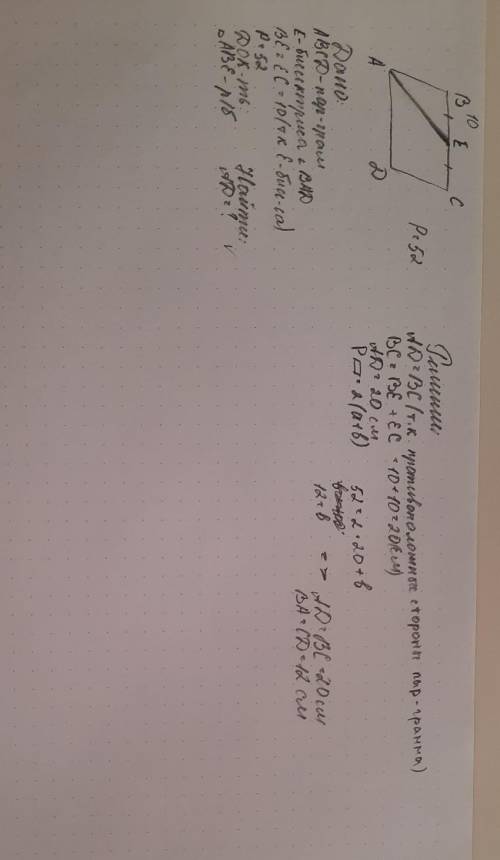 B 10
E
A
C
D
P=52
Дано:
ABCD-пар-грам
E-биссектриса ∠ BAD
BE=EC=10(т.к E-бис-са)
P=52
Док-ть:
△ABE-р/б
Найти:
AD=?
Решение:
AD=BC(т.к. противоположные стороны пар-грамма)
BC=BE+EC=10+10=20(см)
AD=20см
P▭=2(a+b)
52=2·20+b
12=b
=> AD=BC=20см
BA=CD=12см